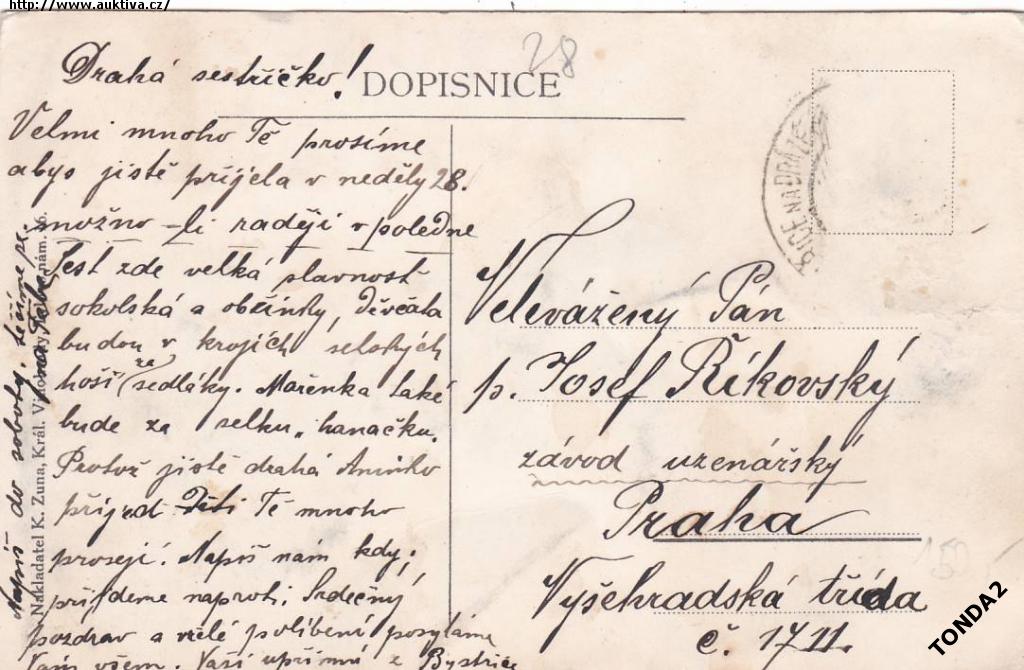 http://www.auktiva.cz/
28
DOPISNICE
Drahá sestřičko!
Velmi mnoho Tě prosíme
abys jistě přijela v neděly 28.
možno-li raději v poledne
Jest zde velká slavnost
sokolská a obžinky, děvčata
budou v krojích selských
hoši za sedláky. Mařenka také
bude za selku „hanačku.
Protož jistě drahá Aninko
přijed Děti Tě mnoho
prosejí. Napiš nám kdy,
přijdeme naproti. Srdečný
pozdrav a vřelé políbení posyláme
Vám všem. Vaši upřímní z Bystřice
Napiš do soboty, těšíme se
na Tebe
Nakladatel K. Zuna, Král. Vinohrady, nám. 6.
Velevážený Pán
p. Josef Říkovský
závod uzenářský
Praha
Vyšehradská třída
č. 1711.
150
TONDA2